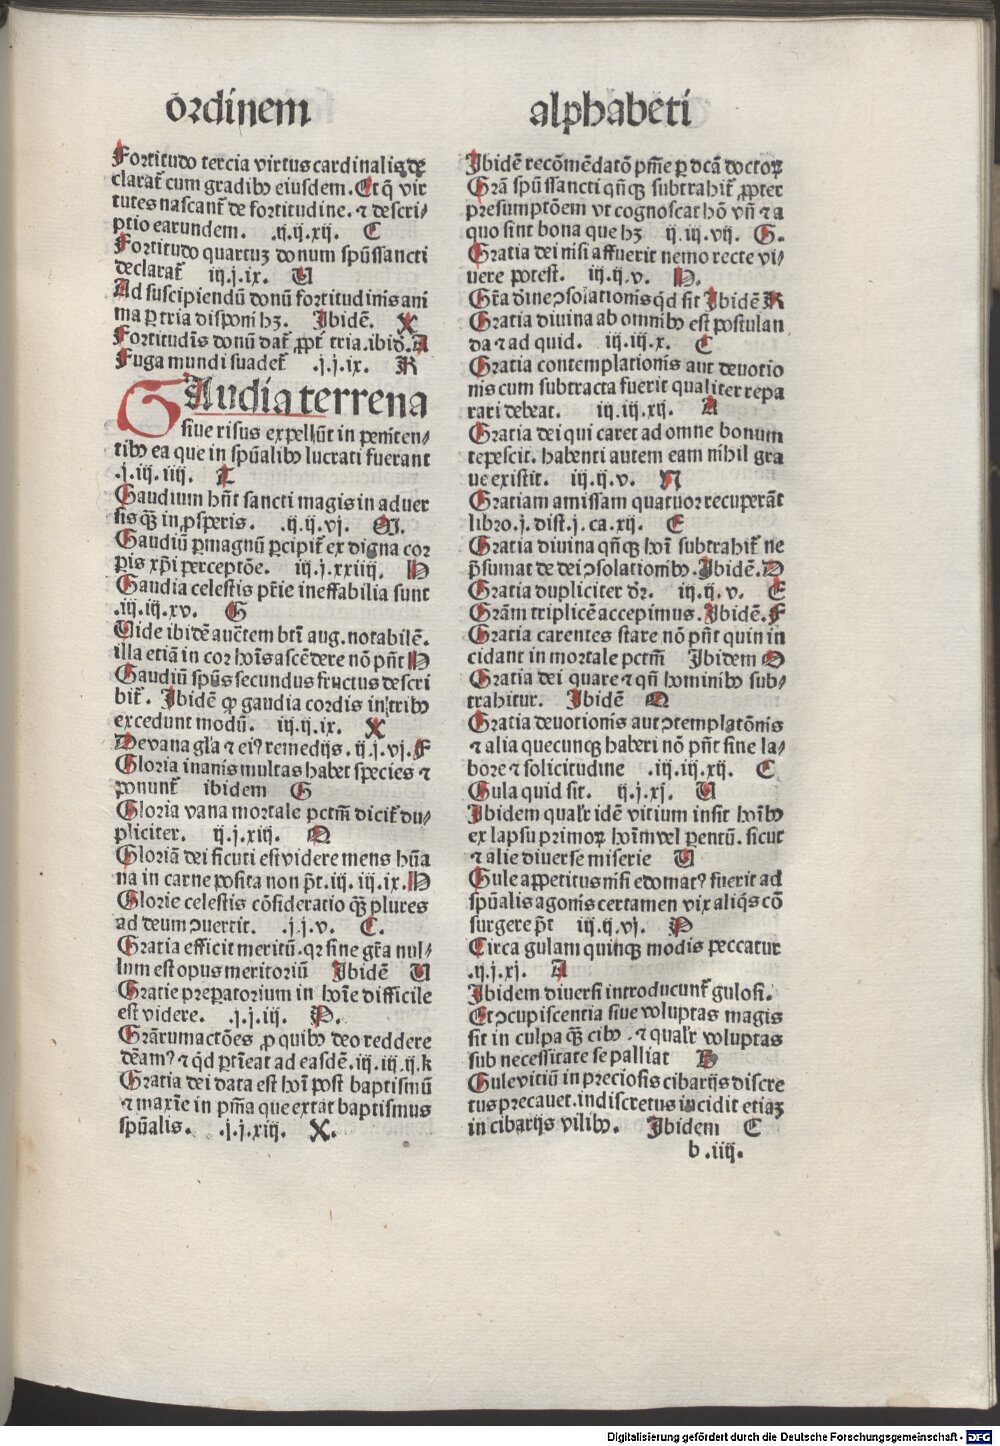 ōrdinem
alphabeti
Fortitudo tercia virtus cardinalis de
clarat᷑ cum gradibꝰ eiusdem. Et q̄ vir
tutes nascant᷑ de fortitudine. ⁊ descri⸗
ptio earundem. .ij.ij.xij. C
Fortitudo quartuꝫ donum spūssancti
declarat᷑ iij.j.ix. U
Ad suscipiendū donū fortitudinis ani
ma ꝑ tria disponi hꝫ. Ibidē. X
Fortitudīs donū dat᷑ ꝓpt᷑ tria. ibiđ. A
Fuga mundi suadet᷑ .j.j.ix. K
GAudia terrena
siue risus expellūt in peniten⸗
tibꝰ ea que in spūalibꝰ lucrati fuerant
.j.iij.iiij. L
Gaudium hn̄t sancti magis in aduer
sis qꝫ̄ in ꝓsperis. .ij.ij.vj. M.
Gaudiū ꝑmagnū ꝑcipit᷑ ex digna cor
ꝑis xp̄i perceptōe. iij.j.xxiiij. H
Gaudia celestis pr̄ie ineffabilia sunt
.iij.iij.xv. G
Uide ibidē auc̄tem btī aug. notabilē.
illa etiā in cor hoīs ascēdere nō pn̄t H
Gaudiū spūs secundus fructus descri
bit᷑. Ibidē ꝙ gaudia cordis in tribꝰ
excedunt modū. iij.ij.ix. X
De vana gl̄a ⁊ eiꝰ remedijs. ij.j.vj. F
Gloria inanis multas habet species ⁊
ponunt᷑ ibidem G
Gloria vana mortale pctm̄ dicit᷑ du⸗
pliciter. ij.j.xiij. Q
Gloriā dei sicuti est videre mens hūa
na in carne posita non pt̄. iij. iij.ix. H
Glorie celestis cōsideratio qꝫ̄ plures
ad deum ↄuertit. .j.j.v. C.
Gratia efficit meritū. qꝛ sine grā nul⸗
lum est opus meritoriū Ibidē U
Gratie preparatorium in hoīe difficile
est videre. .j.j.iij. P.
Grārum actōes ꝓ quibꝰ deo reddere
dēamꝰ ⁊ qd̄ ꝑtīeat ad easdē. iij.iij.ij. k
Gratia dei data est hoī post baptismū
⁊ maxīe in pm̄a que extat baptismus
spūalis. .j.j.xiij. X.
Ibidē recōmēdatō pm̄e ꝑ dcā doctoꝝ
Grā spūssancti qn̄qꝫ subtrahit᷑ ꝓpter
presumptōem vt cognoscat hō vn̄ ⁊ a
quo sint bona que hꝫ ij.iij.vij. G.
Gratia dei nisi affuerit nemo recte vi⸗
uere potest. iij.ij.v. H.
Gr̄a diuīe ↄsolationis qd̄ sit Ibidē K
Gratia diuina ab omnibꝰ est postulan
da ⁊ ad quid. iij.iij.x. C
Gratia contemplationis aut deuotio
nis cum subtracta fuerit qualiter repa
rari debeat. iij.iij.xij. A
Gratia dei qui caret ad omne bonum
tepescit. habenti autem eam nihil gra
ue existit. iij.ij.v. N
Gratiam amissam quatuor recuperāt
libro.j. dist.j. ca.xij. E
Gratia diuina qn̄qꝫ hoī subtrahit᷑ ne
p̄sumat de dei ↄsolationibꝰ. Ibidē. D
Gratia dupliciter dr̄. iij.ij.v. E
Grām triplicē accepimus. Ibidē. F
Gratia carentes stare nō pn̄t quin in
cidant in mortale pctm̄ Ibidem O
Gratia dei quare ⁊ qn̄ hominibꝰ sub⸗
trahitur. Ibidē Q
Gratia deuotionis aut ↄtemplatōnis
⁊ alia quecunqꝫ haberi nō pn̄t sine la⸗
bore ⁊ solicitudine .iij.iij.xij. C
Gula quid sit. ij.j.xj. U
Ibidem qualr̄ idē vitium insit hoībꝰ
ex lapsu primoꝝ hoīm vel ꝑentū. sicut
⁊ alie diuerse miserie U
Gule appetitus nisi edomatꝰ fuerit ad
spūalis agonis certamen vix aliq̄s cō
surgere pt̄ iij.ij.vj. P
Circa gulam quinqꝫ modis peccatur
.ij.j.xj. A
Ibidem diuersi introducunt᷑ gulosi.
Et ↄcupiscentia siue voluptas magis
sit in culpa qꝫ̄ cibꝰ. ⁊ qualr̄ voluptas
sub necessitate se palliat B
Gule vitiū in preciosis cibarijs discre
tus precauet. indiscretus incidit etiaꝫ
in cibarijs vilibꝰ. Ibidem C
b .iij.
Digitalisierung gefördert durch die Deutsche Forschungsgemeinschaft - DFG